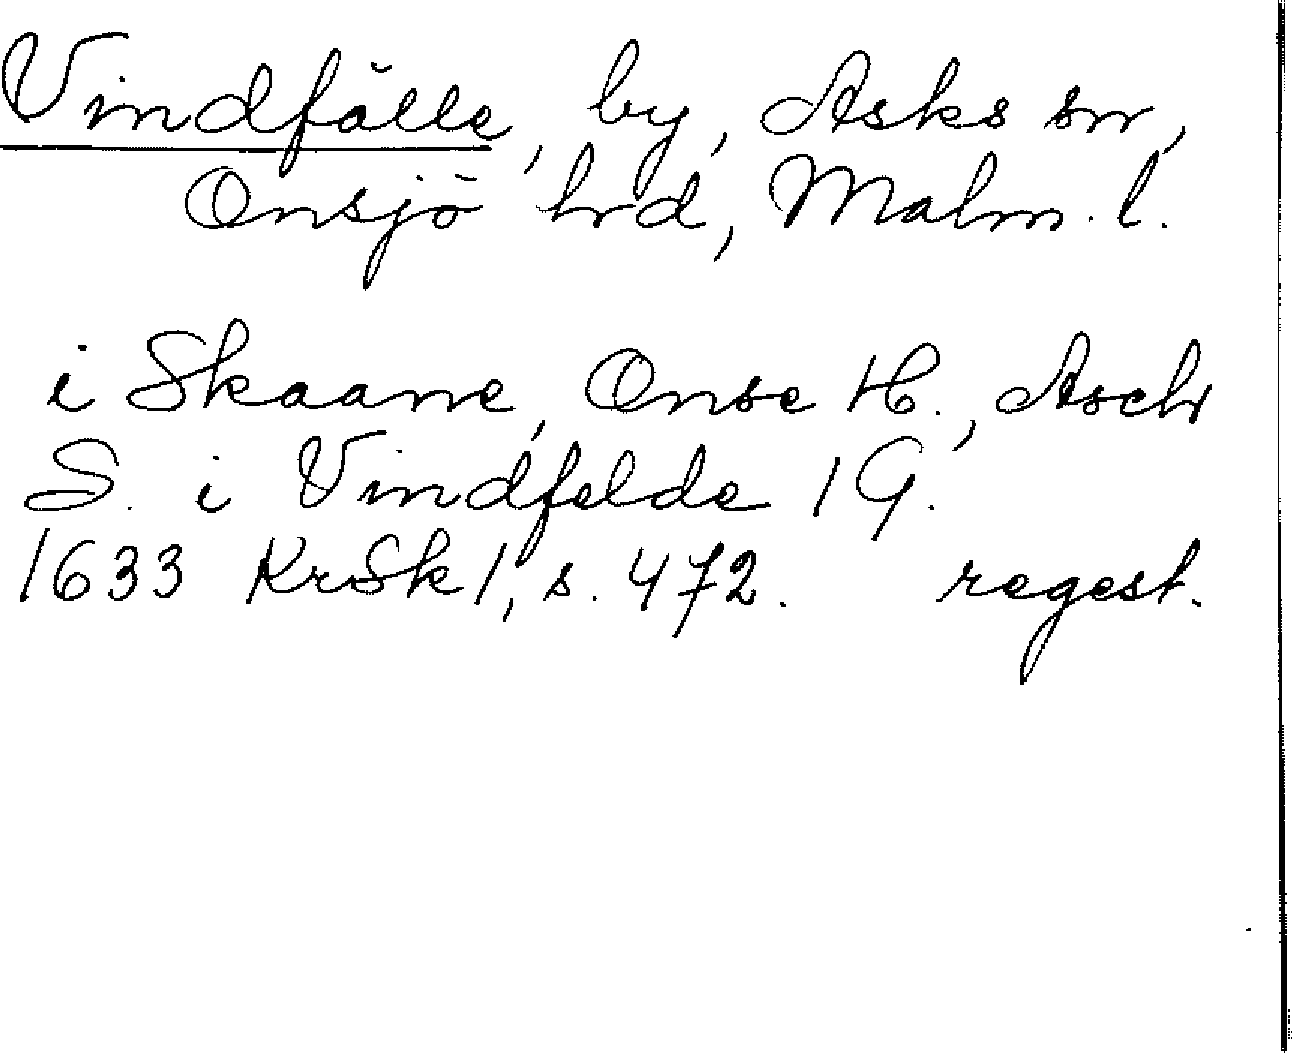 Vindfälle, by, Asks sn,
Onsjö hrd, Malm. l.
i Skaane, Onse H., Asch
S. i Vindfelde 1 G.
1633 KrSk 1, s. 472. regest.